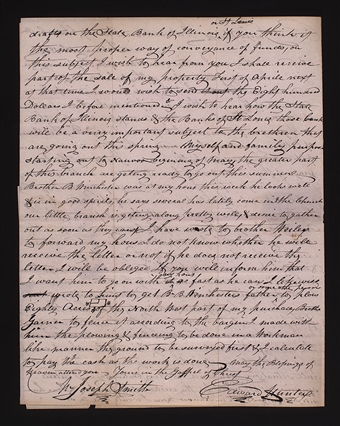 or St Louis
drafts on the State Bank of Illinois, if you think it
the most proper way of conveyance of funds, on
this subject I wish to hear from you I shall receive
part of the sale of my property first of April next
at that time I would wish to send the Eight hundred
Dollars I before mentioned I wish to hear how the State
Bank of Illinois stands & the Bank of St Louis these banks
will be a very important subject to the brethren that
are going out this spring Myself and family purpose
starting out to Nauvoo beginning of May, the greater part
of this branch are getting ready to go out this summer
Brother B Winchester was at my house this week he looks well
& is in good spirits, he says several has lately come into the Church
our little branch is getting along pretty well, & some to gather
out as soon as they can I have wrote to brother
to forward my house I do not know whether he will
receive the letter or not if he does not receive the
letter I will be obliged if you will inform him that
I want him to go on with as fast as he can I likewise
wrote to get B Winchesters father to plow
Eighty Acres of the North part of my purchase, Brother
to fence it according to the bargain I made with
him the plowing & fencing to be done in a Workman
like manner the ground to be surveyed first & I calculate
to pay the cash as the work is done May the blessings of
Heaven attend you Yours in the Gospel of Christ
To Joseph Smith
Edward Hunter